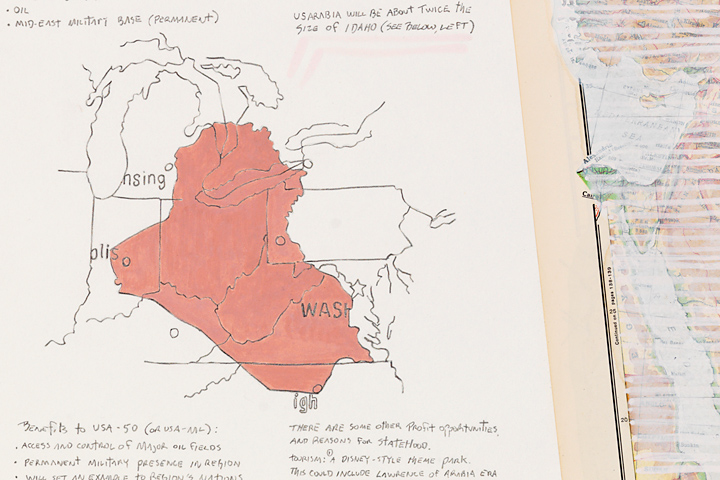 • OIL
• MID-EAST MILITARY BASE (PERMANENT)
USARABIA WILL BE ABOUT TWICE THE
SIZE OF IDAHO (SEE BELOW, LEFT)
nsing
plis
WASH
igh
BENEFITS TO USA-50 (OR USA-ML):
• ACCESS AND CONTROL OF MAJOR OIL FIELDS
• PERMANENT MILITARY PRESENCE IN REGION
• WILL SET AN EXAMPLE TO REGION'S NATIONS
THERE ARE SOME OTHER PROFIT OPPORTUNITIES,
AND REASONS FOR STATEHOOD.
TOURISM: ① A DISNEY-STYLE THEME PARK.
THIS COULD INCLUDE LAWRENCE OF ARABIA ERA
Continued on pages 158-159
20